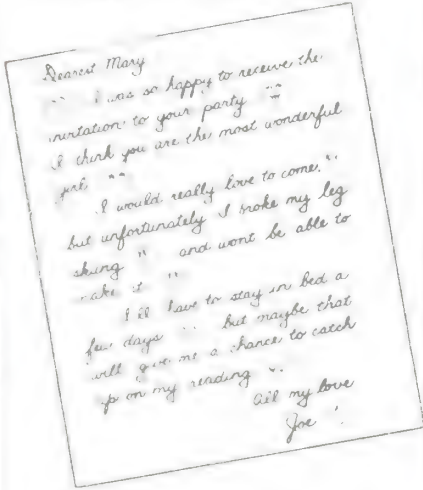 Dearest Mary
" I was so happy to receive the
invitation to your party "
I think you are the most wonderful
girl " "
I would really love to come. "
but unfortunately I broke my leg
skiing " and wont be able to
make it "
I'll have to stay in bed a
few days " but maybe that
will give me a chance to catch
up on my reading ".
All my love
Joe !